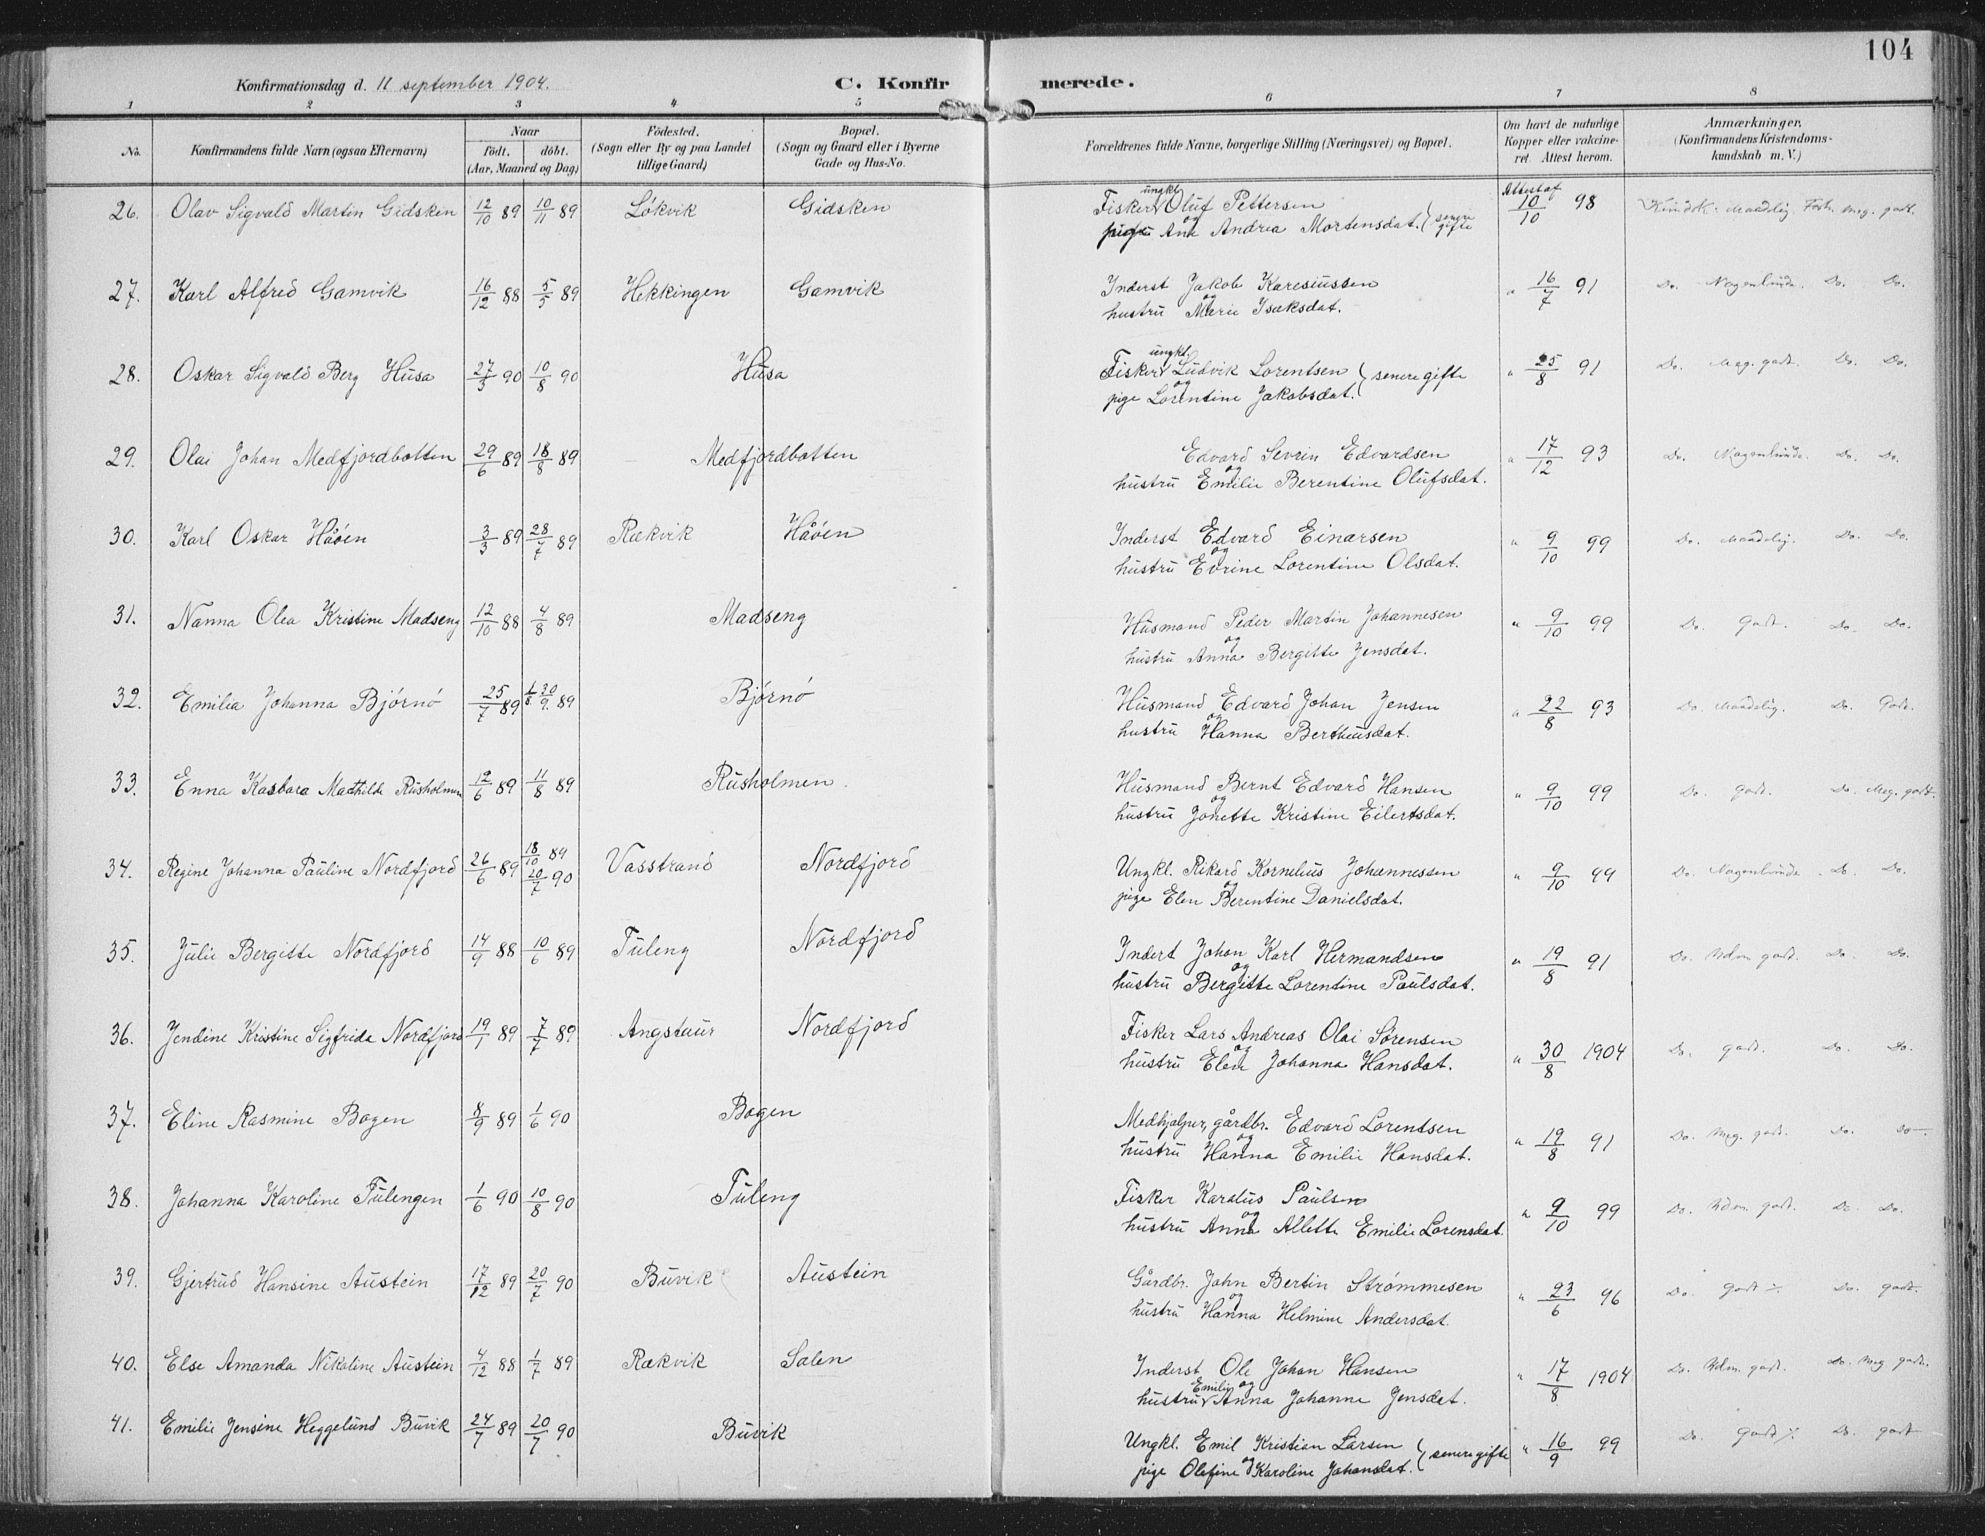 104
Konfirmationsdag d. 11 september 1904.
C. Konfir merede.
1 2 3 4 5 6 7 8
No. Konfirmandens fulde Navn (ogsaa Efternavn) Naar født. døbt. (Aar, Maaned og Dag) Födested. (Sogn eller By og paa Landet tillige Gaard) Bopæl. (Sogn og Gaard eller i Byerne Gade og Hus-No. Forældrenes fulde Navne, borgerlige Stilling (Næringsvei) og Bopæl. Om havt de naturlige Kopper eller vakcineret Attest herom. Anmærkninger, (Konfirmandens Kristendomskundskab m. V.)
26. Olav Sigvald Martin Gidsken 12/10 89 10/11 89 Lökvik Gidsken Fisker ungkl. Oluf Pettersen Attest af 10/10 98 Kundsk. Maadelig Forh. meg. godt.
pige og Ane Andrea Mortensdat. (senere gifte
27. Karl Alfred Gamvik 16/12 88 5/5 89 Hekkingen Gamvik Inderst Jakob Karesiussen " 16/7 91 Do. Nogenlunde. Do. Do.
og hustru Marie Isaksdat.
28. Oskar Sigvald Berg Husa 27/3 90 10/8 90 Husa Fisker ungkl. Ludvik Lorentsen " 25/8 91 Do. Meg. godt. Do. Do.
og pige Lorentine Jakobsdat. (senere gifte
29. Olai Johan Medfjordbotten 29/6 89 18/8 89 Medfjordbotten Edvard Sevrin Edvardsen " 17/12 93 Do. Nogenlunde. Do. Do.
og hustru Emilie Berentine Olufsdat.
30. Karl Oskar Håöen 3/3 89 28/7 89 Rækvik Håöen Inderst Edvard Einarsen " 9/10 99 Do. Maadelig. Do. Do.
og hustru Evrine Lorentine Olsdat.
31. Nanna Olea Kristine Madseng 12/10 88 4/8 89 Madseng Husmand Peder Martin Johannesen " 9/10 99 Do. Godt. Do. Do.
og hustru Anna Bergitte Jensdat.
32. Emilia Johanna Björnö 25/7 89 1/8. 30/9. 89 Björnö Husmand Edvard Johan Jensen " 22/8 93 Do. Maadelig. Do. Godt.
og hustru Hanna Bertheusdat.
33. Enna Kasbara Mathilde Rusholmen 12/6 89 11/8 89 Rusholmen. Husmand Bernt Edvard Hansen " 9/10 99 Do. godt. Do. Meg. godt.
og hustru Jonette Kristine Eilertsdat.
34. Regine Johanna Pauline Nordfjord 26/6 89 18/10 89 20/7 90 Vasstrand Nordfjord Ungkl. Rikard Kornelius Johannessen " 9/10 99 Do. Nogenlunde. Do. Do.
og pige Elen Berentine Danielsdat.
35. Julie Bergitte Nordfjord 14/9 88 10/6 89 Tuleng Nordfjord Indert Johan Karl Hermandsen " 19/8 91 Do. Udm. godt. Do. Do.
og hustru Bergitte Lorentine Paulsdat.
36. Jendine Kristine Sigfrida Nordfjord 19/1 89 7/7 89 Angstaur Nordfjord Fisker Lars Andreas Olai Sørensen " 30/8 1904 Do. godt. Do. Do.
og hustru Elen Johanna Hansdat.
37. Eline Rasmine Bogen 8/9 89 1/6 90 Bogen Medhjælper, gårdbr. Edvard Lorentsen " 19/8 91 Do. Meg. godt. Do. do.
og hustru Hanna Emilie Hansdat.
38. Johanna Karoline Tulengen 1/6 90 10/8 90 Tuleng Fisker Karolus Paulsen " 9/10 99 Do. Udm. godt. Do. Do.
og hustru Anna Allette Emilie Lorensdat.
39. Gjertrud Hansine Austein 17/12 89 20/7 90 Buvik Austein Gårdbr. John Bertin Strømmesen " 23/6 96 Do. Godt ./. Do. godt.
og hustru Hanna Helmine Andersdat.
40. Else Amanda Nikoline Austein 4/12 88 1/7 89 Rækvik Salen Inderst Ole Johan Hansen " 17/8 1904 Do. Udm. godt. Do. Meg godt.
hustru Emilie og Anna Johanne Jensdat.
41. Emilie Jensine Heggelund Buvik 24/7 89 20/7 90 Buvik Ungkl. Emil Kristian Larsen " 16/9 99 Do. Godt ./. Do. godt
pige Olefine og Karoline Johansdat. (senere gifte